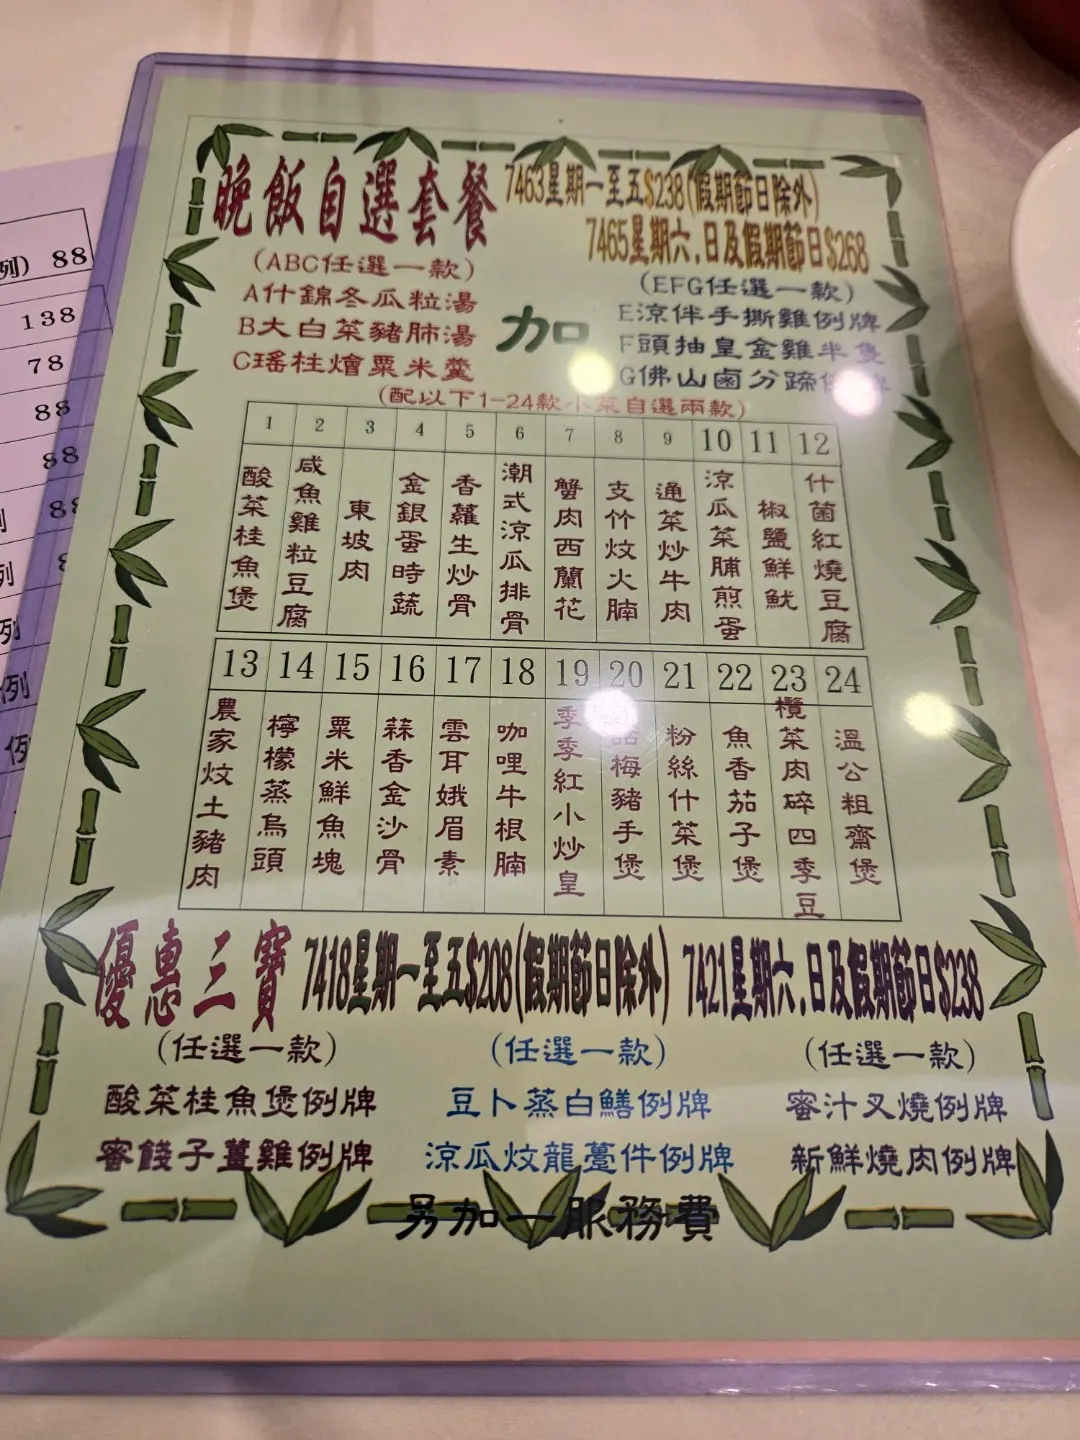 晚飯自選套餐
7463星期一至五$238(假期節日除外)
7465星期六.日及假期節日$268
(ABC任選一款)
A什錦冬瓜粒湯
B大白菜豬肺湯
C瑤柱燴粟米羹
加
(EFG任選一款)
E涼伴手撕雞例牌
F頭抽皇金雞半隻
G佛山鹵分蹄
(配以下1-24款小菜自選兩款)
1 2 3 4 5 6 7 8 9 10 11 12
酸菜桂魚煲
咸魚雞粒豆腐
東坡肉
金銀蛋時蔬
香蘿生炒骨
潮式涼瓜排骨
蟹肉西蘭花
支竹炆火腩
通菜炒牛肉
涼瓜菜脯煎蛋
椒鹽鮮魷
什菌紅燒豆腐
13 14 15 16 17 18 19 20 21 22 23 24
農家炆土豬肉
檸檬蒸烏頭
粟米鮮魚塊
蒜香金沙骨
雲耳娥眉素
咖哩牛根腩
季季紅小炒皇
話梅豬手煲
粉絲什菜煲
魚香茄子煲
欖菜肉碎四季豆
溫公粗齋煲
優惠三寶
7418星期一至五$208(假期節日除外)
7421星期六.日及假期節日$238
(任選一款)
酸菜桂魚煲例牌
蜜餞子薑雞例牌
(任選一款)
豆卜蒸白鱔例牌
涼瓜炆龍躉件例牌
(任選一款)
蜜汁叉燒例牌
新鮮燒肉例牌
另加一服務費
例) 88
138
78
88
88